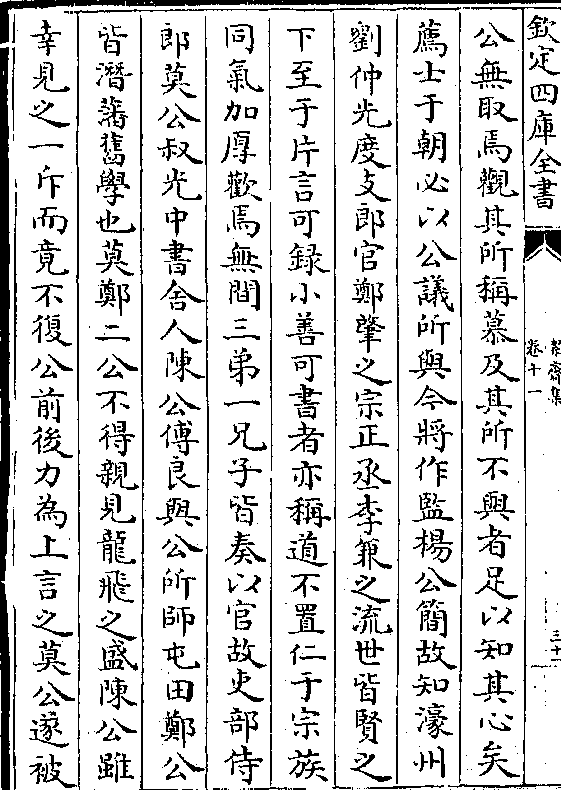 欽定四庫全書
絜齋集
卷十一
三十一
公無取焉觀其所稱慕及其所不與者足以知其心矣
薦士于朝必以公議所與今將作監楊公簡故知濠州
劉仲光度支郎官鄭肇之宗正丞李兼之流世皆賢之
下至于片言可録小善可書者亦稱道不置仁于宗族
同氣加厚歡焉無間三弟一兄子皆奏以官故吏部侍
郎莫公叔光中書舍人陳公傅良與公所師屯田鄭公
皆潛藩舊學也莫鄭二公不得親見龍飛之盛陳公雖
幸見之一斥而竟不復公前後力為上言之莫公遂被